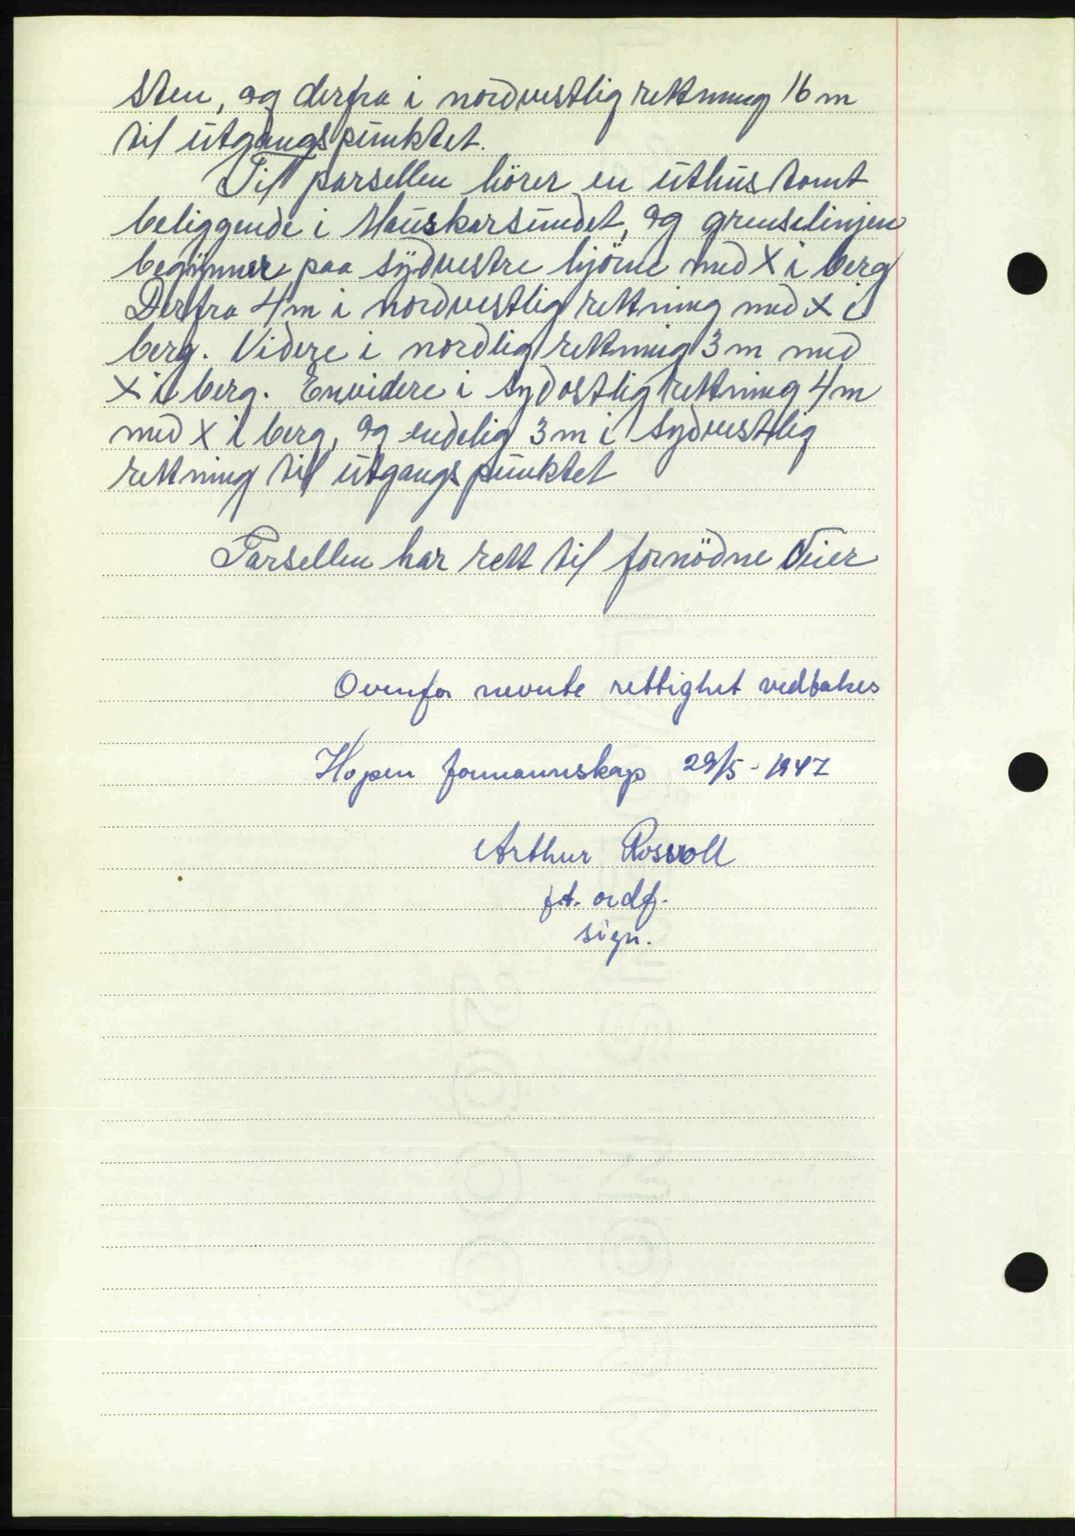 sten, og derfra i nordvestlig retning 16 m
til utgangspunktet.
Til parsellen hörer en uthustomt
beliggende i Mauskarsundet, og grenselinjen
begynner paa sydvestre hjörne med X i berg
Derfra 4 m i nordvestlig rettning med X i
berg. Videre i nordlig rettning 3 m med
X i berg. Envidere i sydostlig rettning 4 m
med X i berg, og endelig 3 m i sydvestlig
rettning til utgangspunktet
Parsellen har rett til fornödne Veier
Ovenfor nevnte rettighet vedtakes
Hopen formannskap 29/5 - 1947
Arthur Rosvoll
f.t. ordf.
sign.